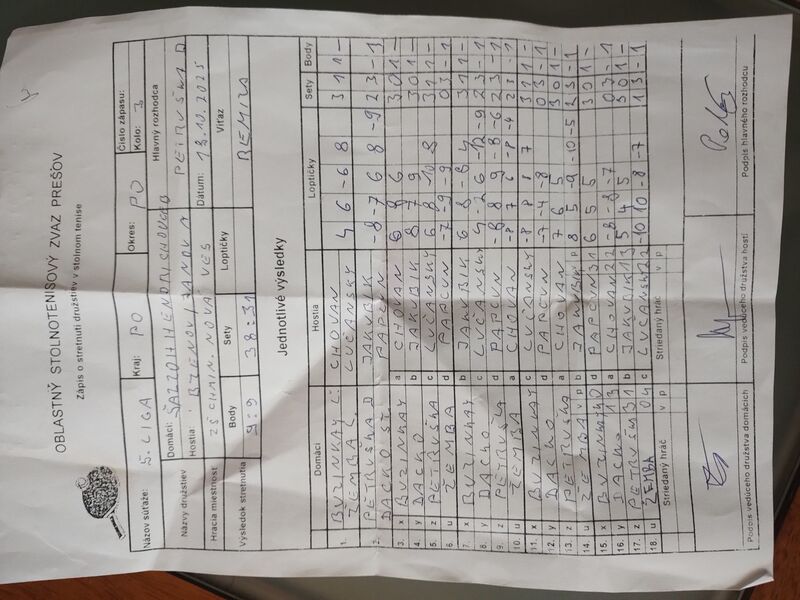 OBLASTNÝ STOLNOTENISOVÝ ZVAZ PREŠOV
Zápis o stretnutí družstiev v stolnom tenise
Názov súťaže: 5. LIGA Kraj: PO Okres: PO Číslo zápasu:
Kolo: 3
Názvy družstiev Domáci: Hlavný rozhodca
Hostia: PETRUŠKA D
Hracia miestnosť ZŠ CHMIN. NOVÁ VES Dátum: 18.10.2025
Výsledok stretnutia Body Sety Loptičky Víťaz
9:9 38:31 REMÍZA
Jednotlivé výsledky
Domáci Hostia Loptičky Sety Body
1. BUZINKAY Ľ. CHOVAN 4 6 -6 8 3 1 1 -
ŽEMBA L. LUČANSKÝ
2. PETRUŠKA D JAKUBIK -8 -7 6 8 -9 2 3 - 1
DACKO ST. PAPCUN
3. x BUZINKAY a CHOVAN 6 8 6 3 0 1 -
4. y DACKO b JAKUBIK 8 7 9 3 0 1 -
5. z PETRUŠKA c LUČANSKÝ 6 8 -10 8 3 1 1 -
6. u ŽEMBA d PAPCUN -7 -9 -9 0 3 - 1
7. x BUZINKAY b JAKUBIK 6 8 -8 4 3 1 1 -
8. y DACKO c LUČANSKÝ 4 -2 6 -12 -9 2 3 - 1
9. z PETRUŠKA d PAPCUN -8 8 9 -8 -6 2 3 - 1
10. u ŽEMBA a CHOVAN -8 7 6 -8 -4 2 3 - 1
11. x BUZINKAY c LUČANSKÝ -8 8 8 7 3 1 1 -
12. y DACKO d PAPCUN -7 -4 -8 0 3 - 1
13. z PETRUŠKA a CHOVAN 7 6 5 3 0 1 -
14. u ŽEMBA b JAKUBIK 8 5 -9 -10 -5 2 3 - 1
15. x BUZINKAY d PAPCUN 31 6 5 5 3 0 1 -
16. y DACKO 13 a CHOVAN 22 -8 -8 -7 0 3 - 1
17. z PETRUŠKA 31 b JAKUBIK 13 5 4 5 3 0 1 -
18. u ŽEMBA 04 c LUČANSKÝ 22 -10 10 -8 -7 1 3 - 1
Striedaný hráč v p Striedaný hráč v p
Podpis vedúceho družstva domácich Podpis vedúceho družstva hostí Podpis hlavného rozhodcu